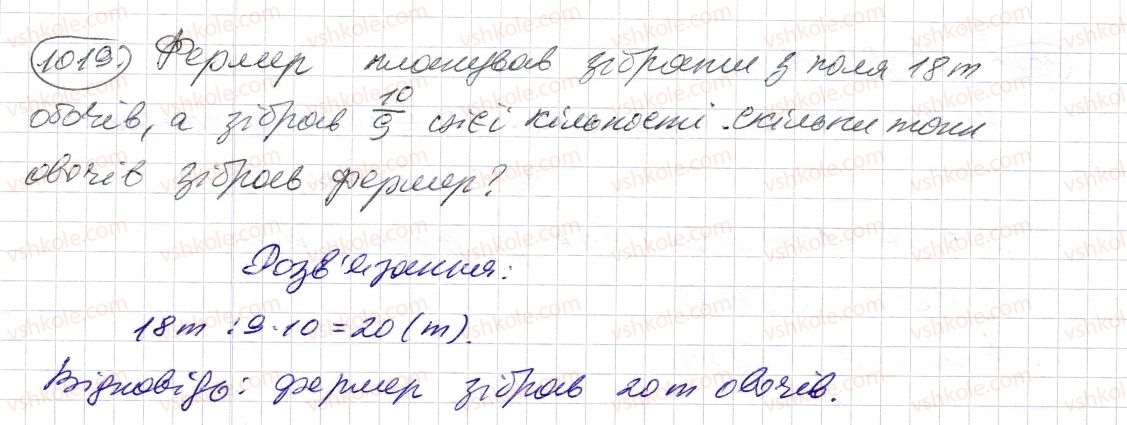 1019. Фермер планував зібрати з поля 18т
овочів, а зібрав 10/9 цієї кількості. Скільки тонн
овочів зібрав фермер?
Розв'язання:
18т : 9 · 10 = 20 (т).
Відповідь: фермер зібрав 20т овочів.